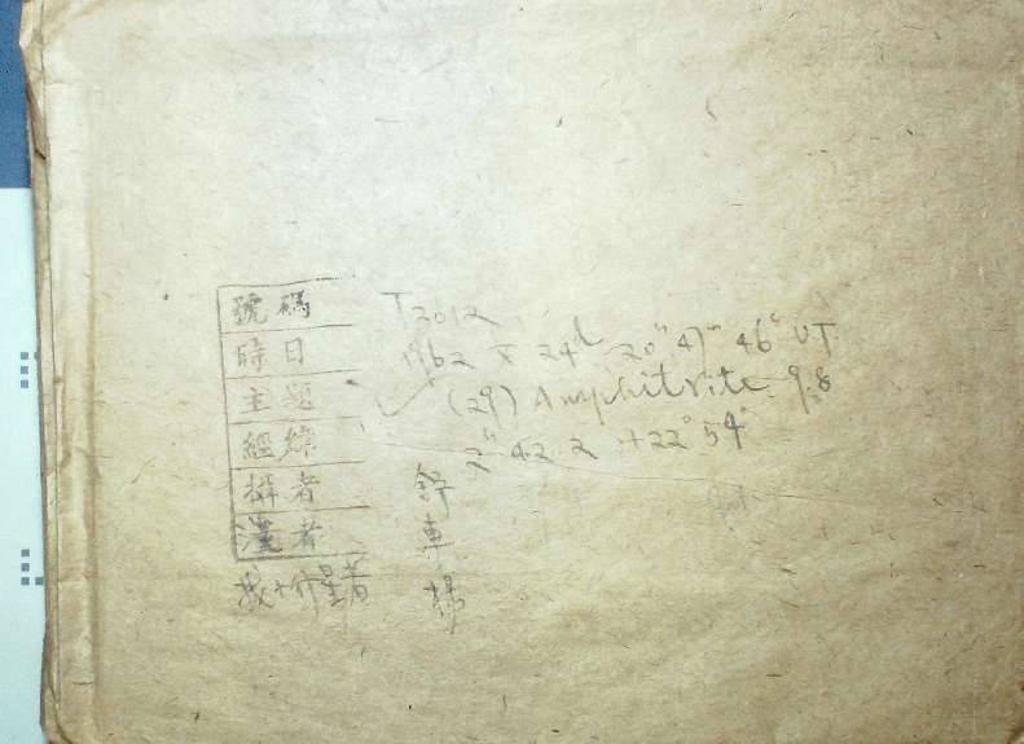 號碼 T2012
時日 1962 X 24d 20h 47m 46s UT
主題 ✓ (29) Amphitrite 9.8
經緯 2h 42.2 +22° 54'
攝者 舒
者 車
者 楊